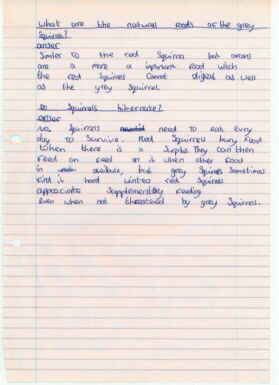 what are the natural foods of the grey
Squirrel?
answer
Similar to the red Squirrel but acorns
are a more a important food which
the red Squirrels Cannot digest as well
as the grey Squirrel.
Do Squirrels hibernate?
answer
No, Squirrels need to eat every
day to Survive. Red Squirrels bury food
when there is a Surplus They can then
Feed on it when other food
in available, but grey Squirrels Sometimes
find it hard winter red Squirrels
appreciate Supplementary Feeding
Even when not threatened by grey Squirrel.